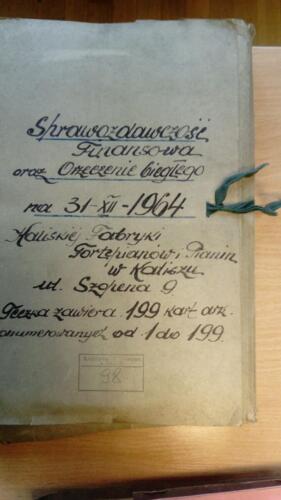 Sprawozdawczość
Finansowa
oraz Orzeczenie biegłego
na 31-XII-1964
Kaliskiej Fabryki
Fortepianów i Pianin
w Kaliszu
ul. Szopena 9.
Teczka zawiera 199 kart ark.
onumerowanych od 1 do 199.
98